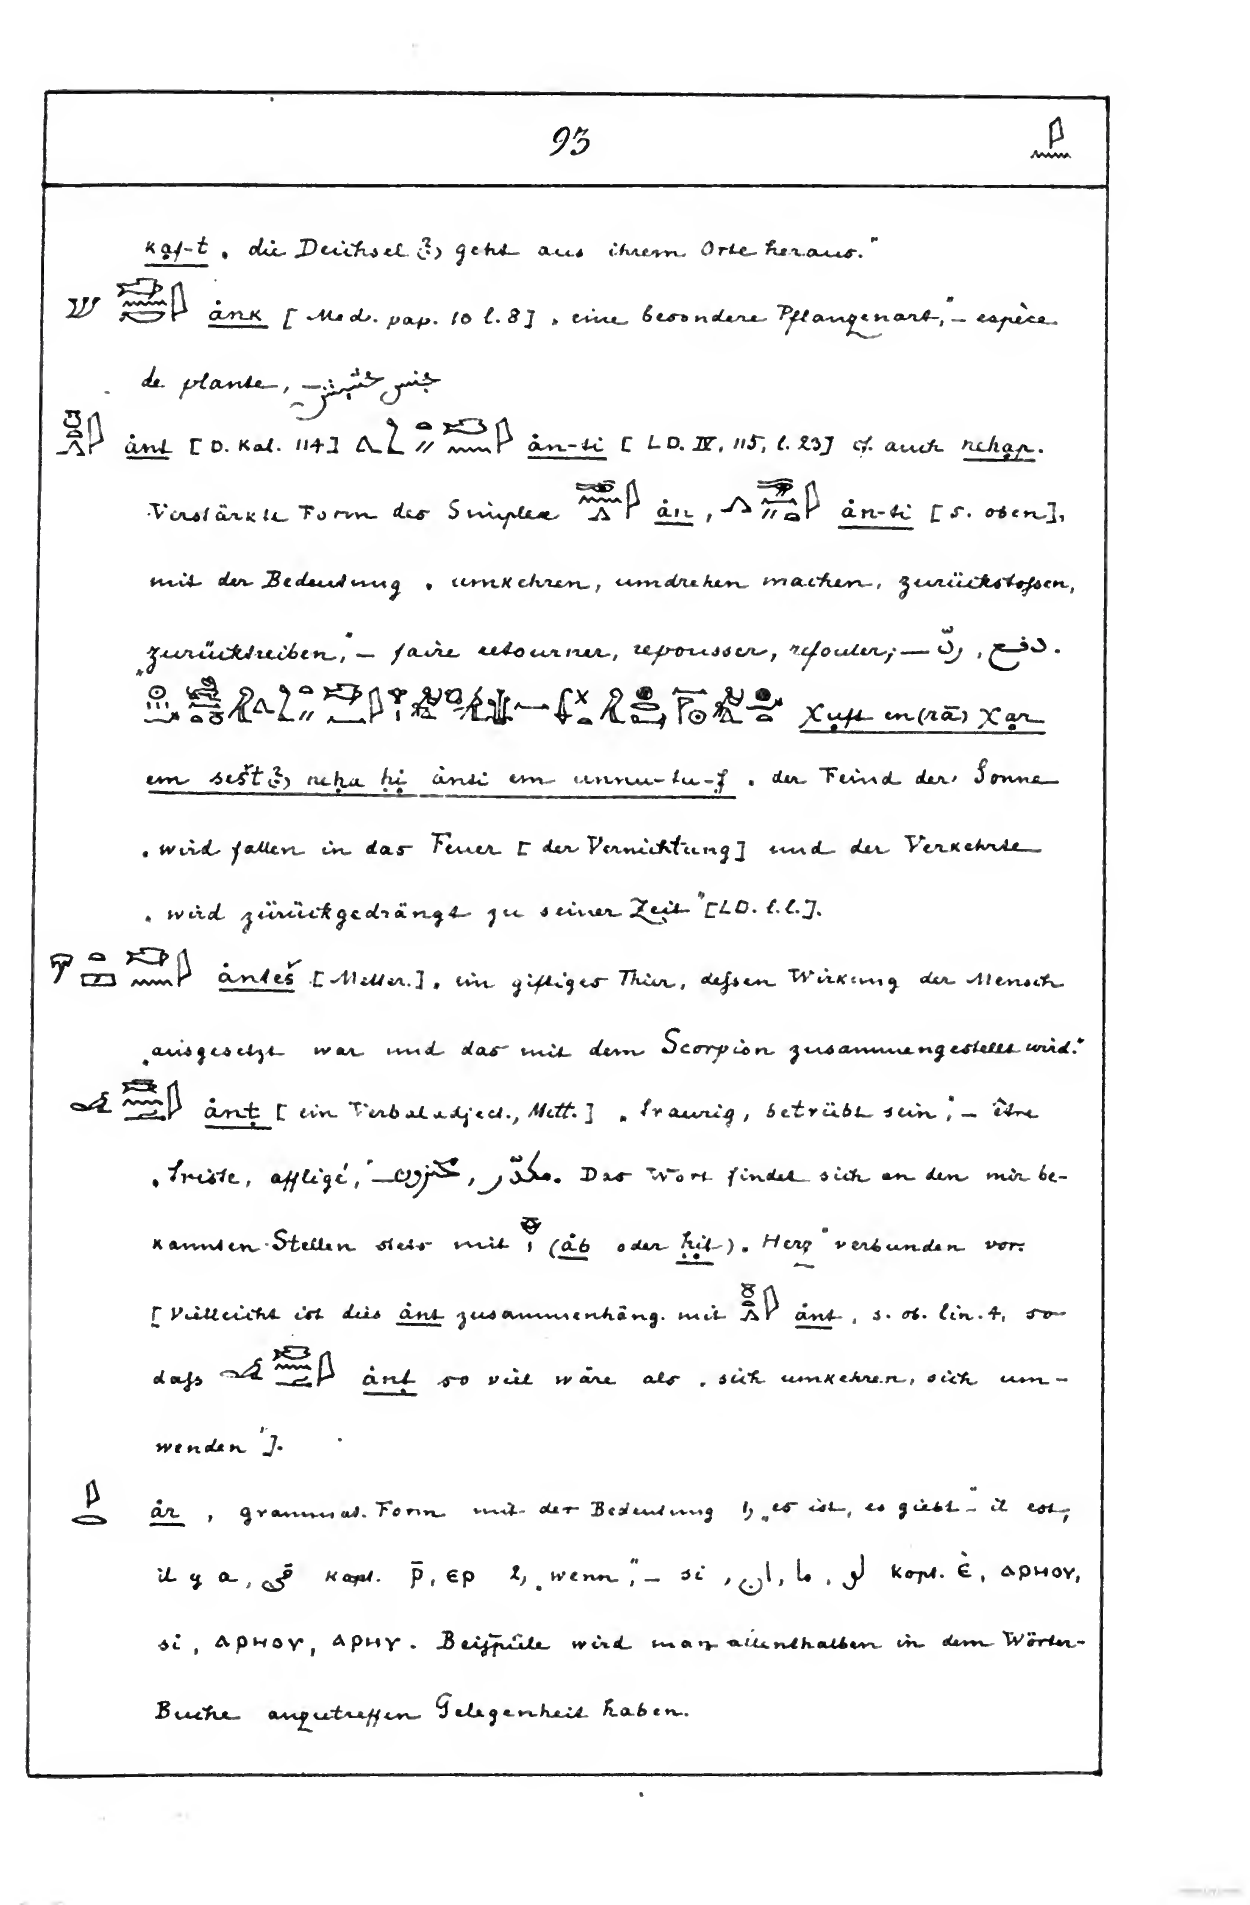 93
kaf-t „ die Deichsel (?) geht aus ihrem Orte heraus."
ȧnk [Med. pap. 10 l. 8] „ eine besondere Pflanzenart," – espèce
de plante, – جنس حشيش
ȧnt [D. Kal. 114] ȧn-ti [LD. IV, 115, l. 23] cf. auch neḥap.
Verstärkte Form des Simplex ȧn, ȧn-ti [s. oben],
mit der Bedeutung „ umkehren, umdrehen machen, zurückstoßen,
„zurücktreiben," – faire retourner, repousser, refouler, – ردّ, دفع.
χuft en (rā) χar
em sešt (?) neḥa ḥi ȧnti em unnu-tu-f „ der Feind der Sonne
„ wird fallen in das Feuer [der Vernichtung] und der Verkehrte
„ wird zürückgedrängt zu seiner Zeit" [LD. l. l.].
ȧnteš [Metter.] „ ein giftiges Thier, deßen Wirkung der Mensch
„ausgesetzt war und das mit dem Scorpion zusammengestellt wird."
ȧnṭ [ein Verbaladject., Mett.] „ traurig, betrübt sein," – être
„ triste, affligé," – محزون, مكدّر. Das Wort findet sich an den mir be-
kannten Stellen stets mit (ȧb oder ḥit) „ Herz" verbunden vor.
[Vielleicht ist dies ȧnt zusammenhäng. mit ȧnt, s. ob. lin. 4, so
daß ȧnṭ so viel wäre als „ sich umkehren, sich um-
wenden"].
ȧr, grammat. Form mit der Bedeutung 1) „es ist, es giebt" – il est,
il y a, فى kopt. ⲣ̄, ⲉⲣ 2) „wenn," – si, ان, ما, لو kopt. ⲉ̀, ⲁⲣⲏⲟⲩ,
si, ⲁⲣⲏⲟⲩ, ⲁⲣⲏⲩ. Beispiele wird man allenthalben in dem Wörter-
Buche anzutreffen Gelegenheit haben.